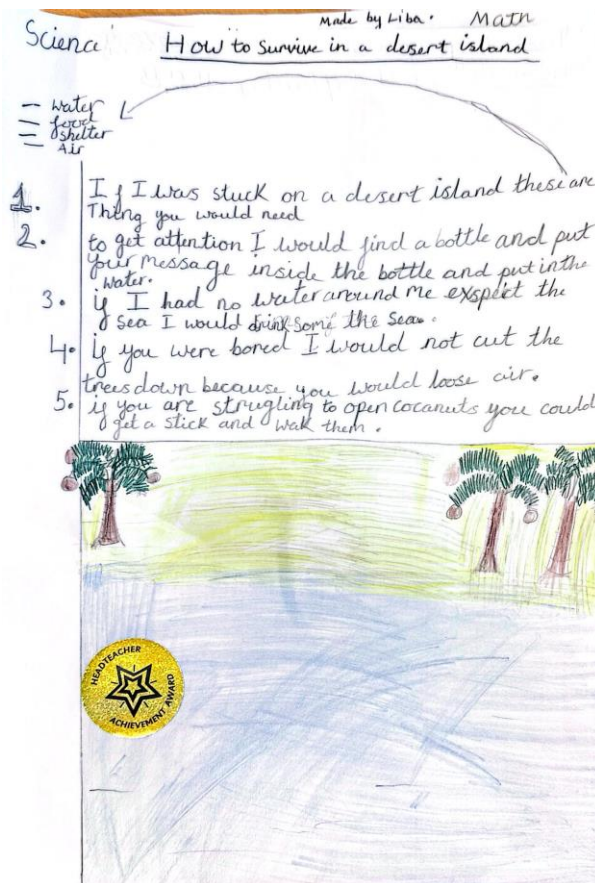 Made by Liba. Math
Science How to survive in a desert island
– water
– food
– shelter
– Air
1. If I was stuck on a desert island these are
Thing you would need
2. to get attention I would find a bottle and put
your message inside the bottle and put in the
water.
3. if I had no water around me exspect the
sea I would drink some the sea.
4. if you were bored I would not cut the
trees down because you would loose air.
5. if you are strugling to open cocanuts you could
get a stick and wak them.
HEADTEACHER
ACHIEVEMENT AWARD